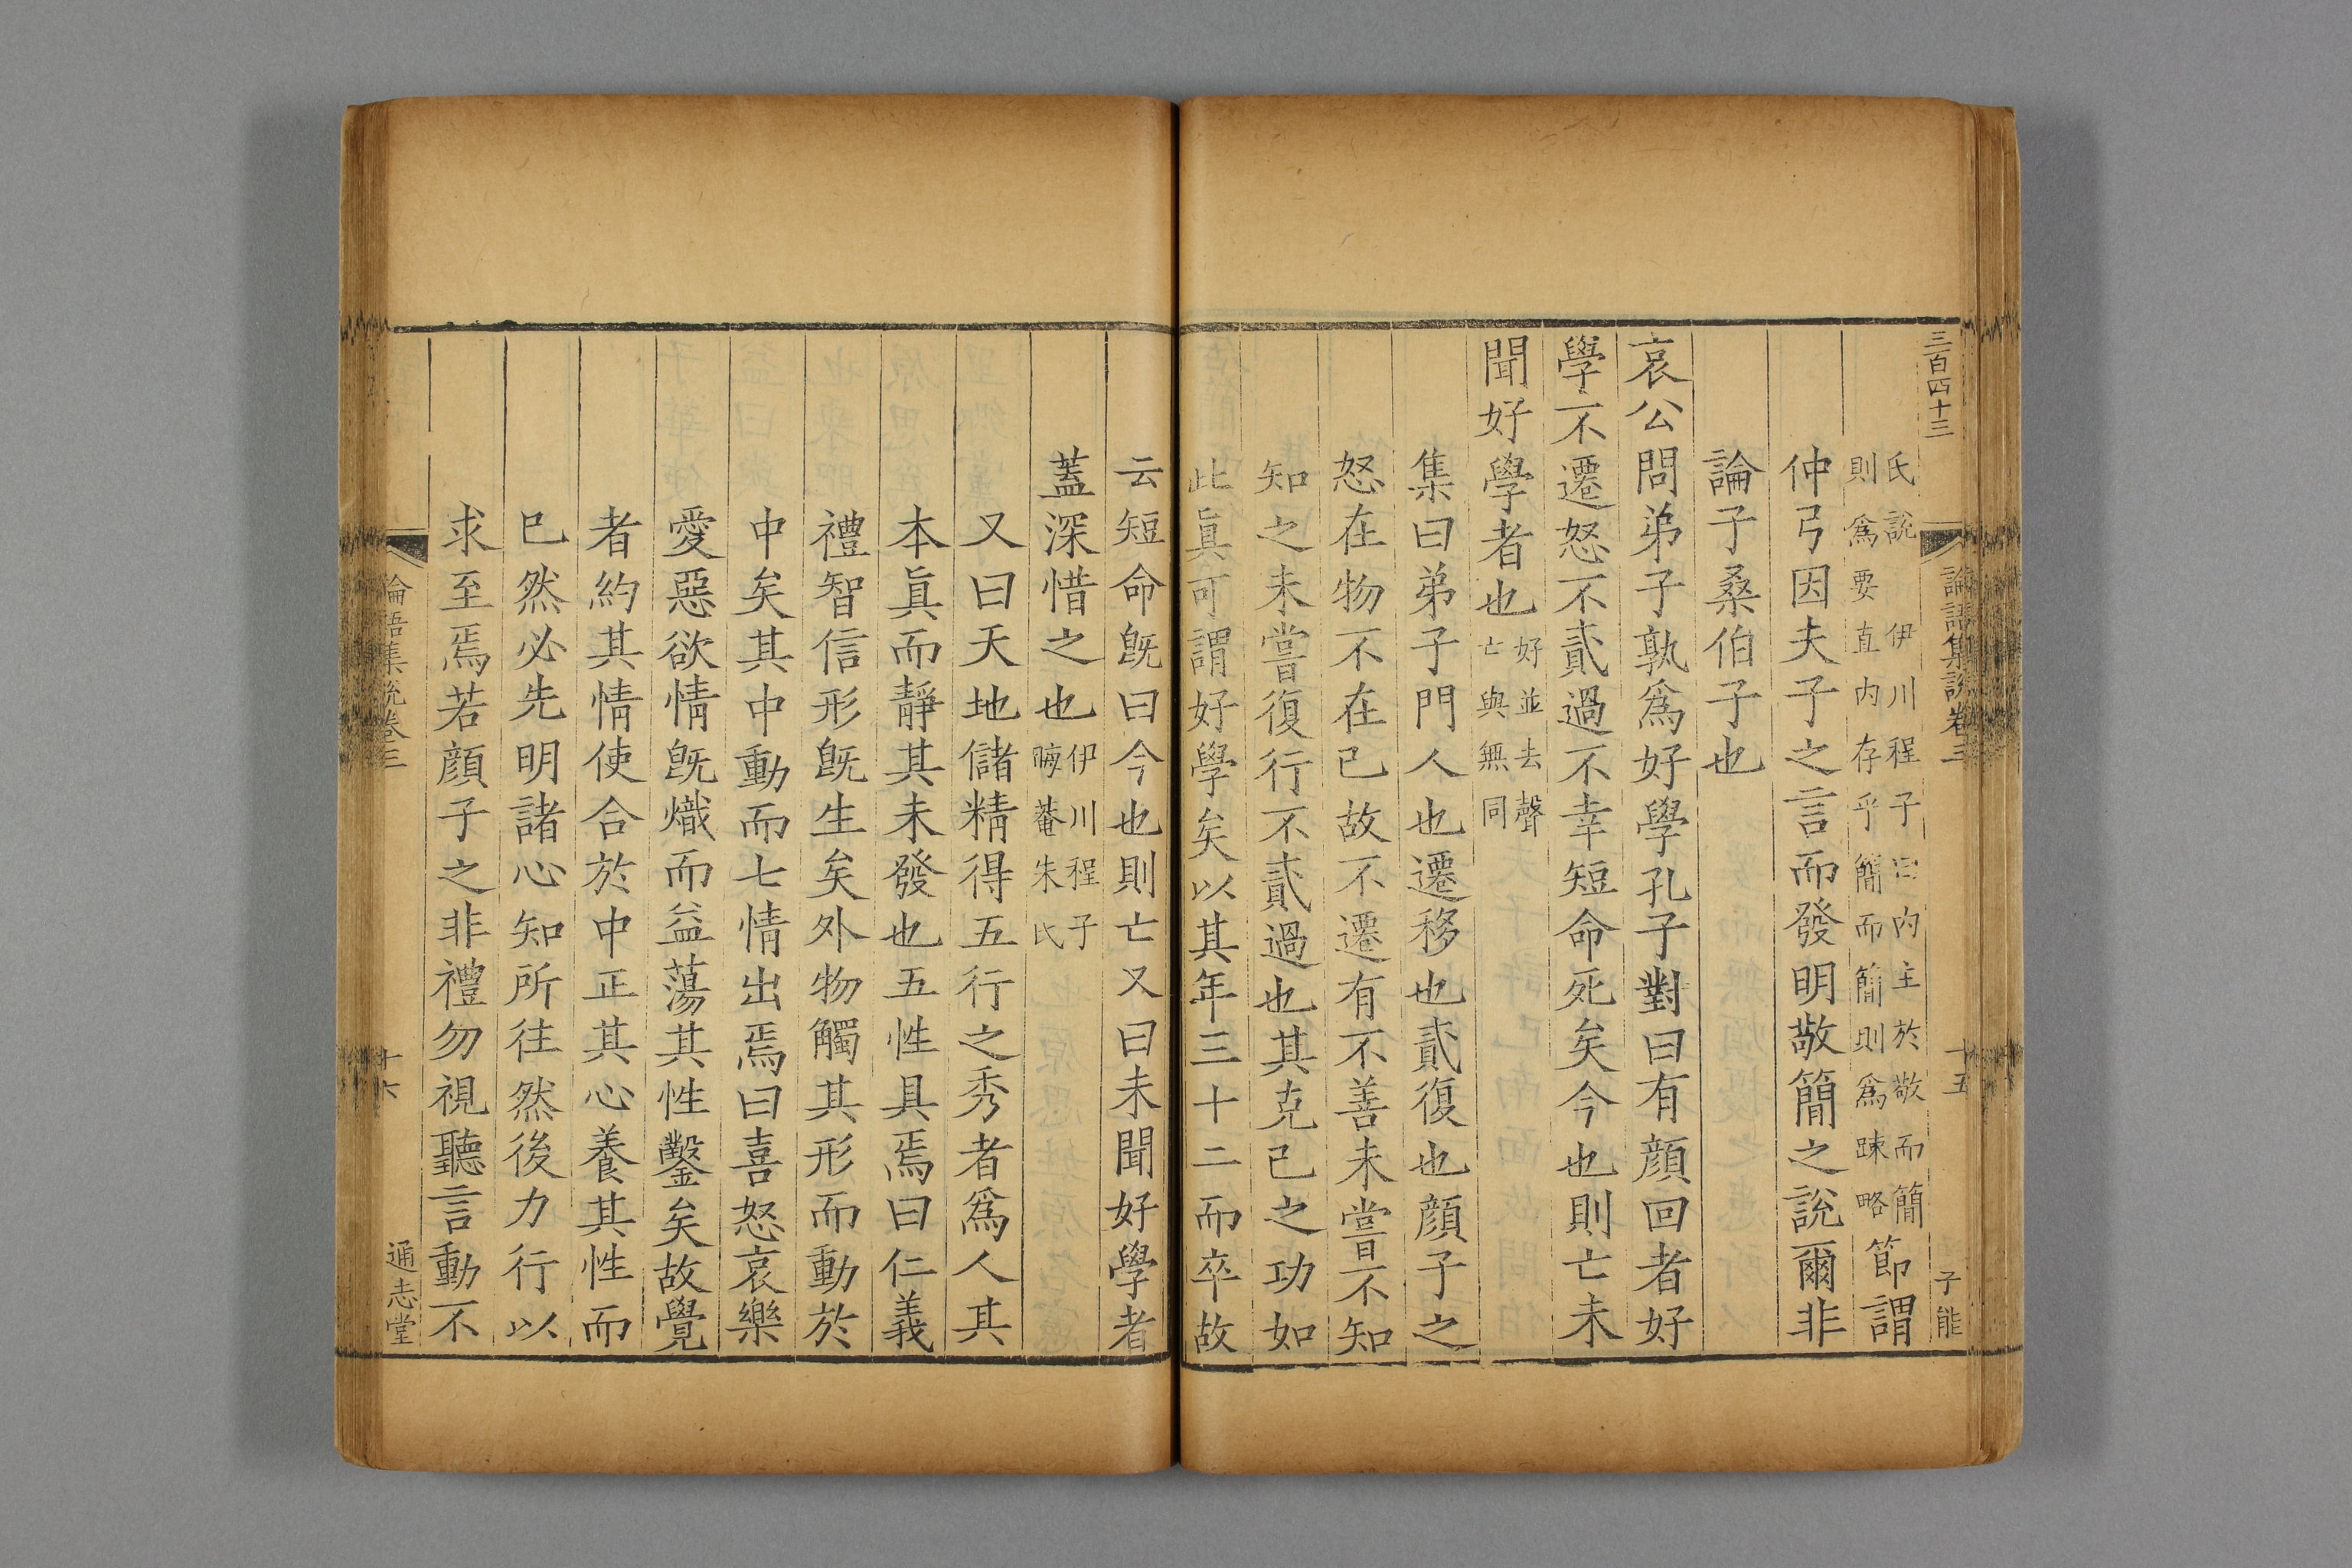 三百四十三
論語集說卷三
十五
子能
氏說 伊川程子曰內主於敬而簡
則爲要直內存乎簡而簡則爲踈略
節謂
仲弓因夫子之言而發明敬簡之說爾非
論子桑伯子也
哀公問弟子孰爲好學孔子對曰有顔回者好
學不遷怒不貳過不幸短命死矣今也則亡未
聞好學者也
好並去聲
亡與無同
集曰弟子門人也遷移也貳復也顔子之
怒在物不在己故不遷有不善未嘗不知
知之未嘗復行不貳過也其克己之功如
此眞可謂好學矣以其年三十二而卒故
云短命旣曰今也則亡又曰未聞好學者
蓋深惜之也
伊川程子
晦菴朱氏
又曰天地儲精得五行之秀者爲人其
本眞而靜其未發也五性具焉曰仁義
禮智信形旣生矣外物觸其形而動於
中矣其中動而七情出焉曰喜怒哀樂
愛惡欲情旣熾而益蕩其性鑿矣故覺
者約其情使合於中正其心養其性而
已然必先明諸心知所往然後力行以
求至焉若顔子之非禮勿視聽言動不
論語集說卷三
十六
通志堂